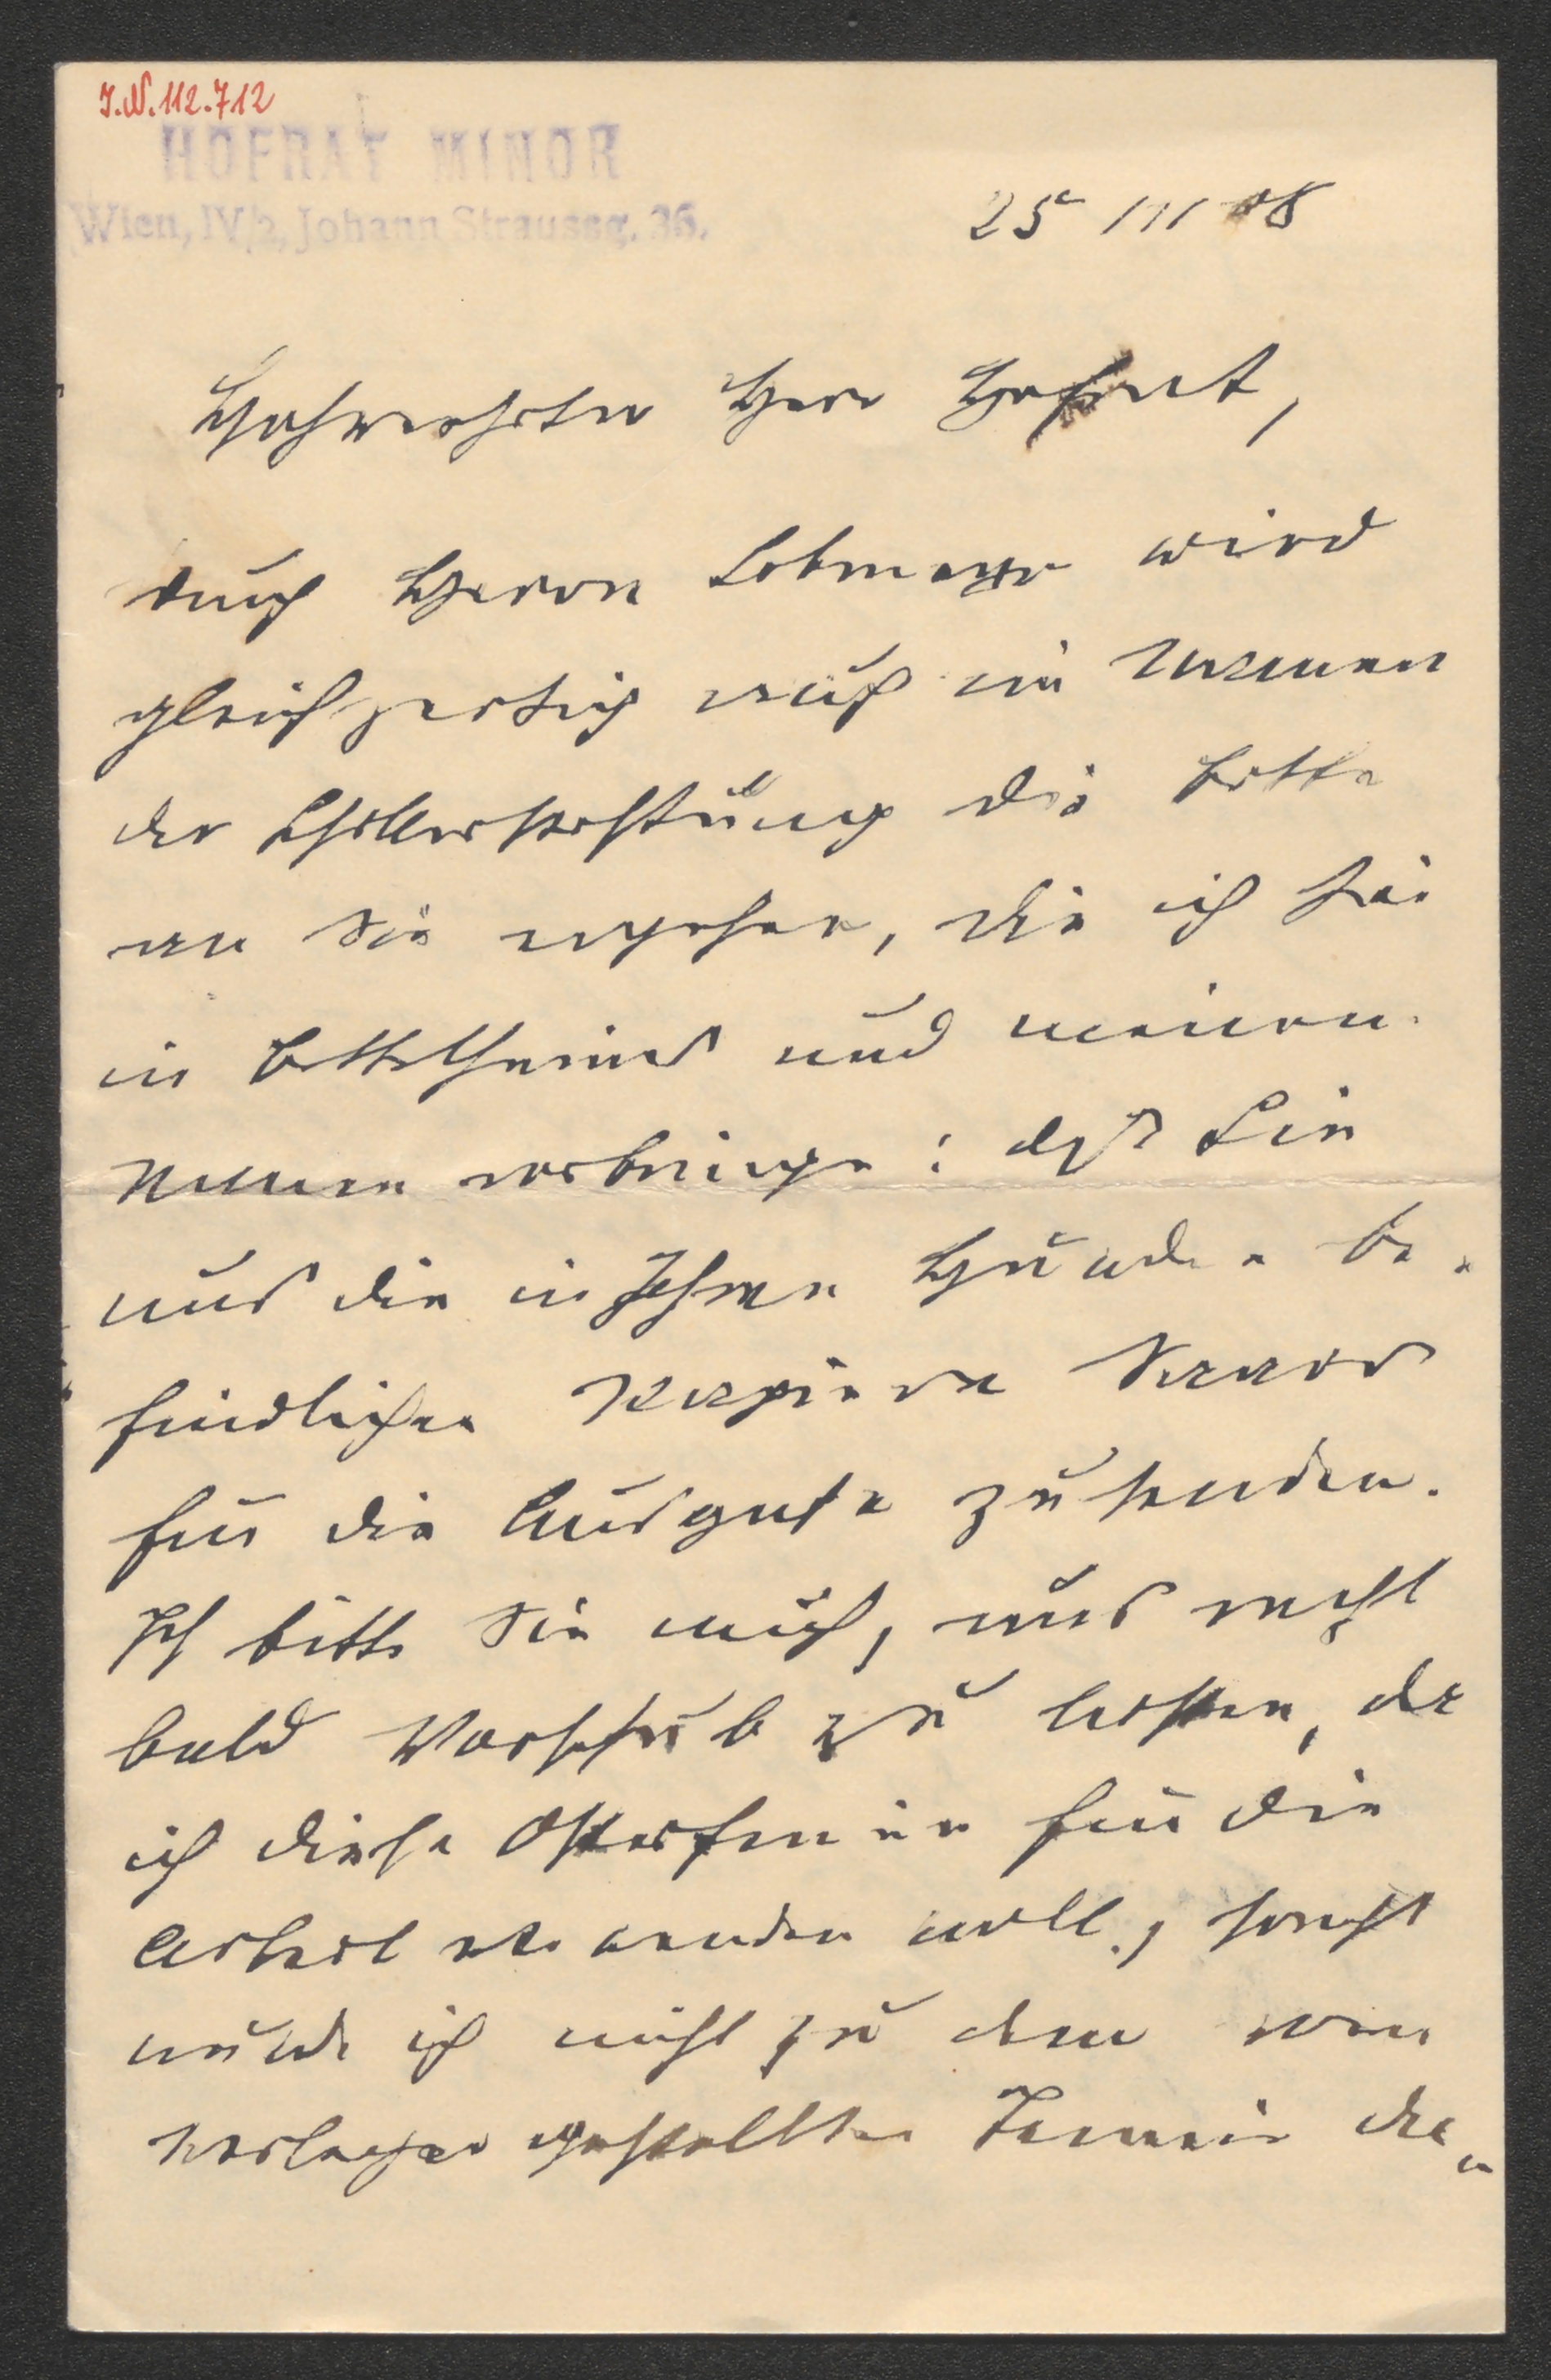 I.N. 112.712
HOFRAT MINOR
Wien, IV/2, Johann Straussg. 36.
25 III 08
Hochverehrter Herr Hofrat,
durch Herrn Lobmeyr wird
gleichzeitig auch im Namen
der Schillerstiftung die Bitte
an Sie ergehen, die ich hier
in Bettelheims und meinem
Namen vorbringe: daß Sie
uns die in Ihren Händen be-
findlichen Papiere Saars
für die Ausgabe zusenden.
Ich bitte Sie auch, uns recht
bald Vorschub zu leisten, da
ich diese Osterferien für die
Arbeit verwenden will, sonst
würde ich nicht zu dem vom
Verleger gestellten Termin da-